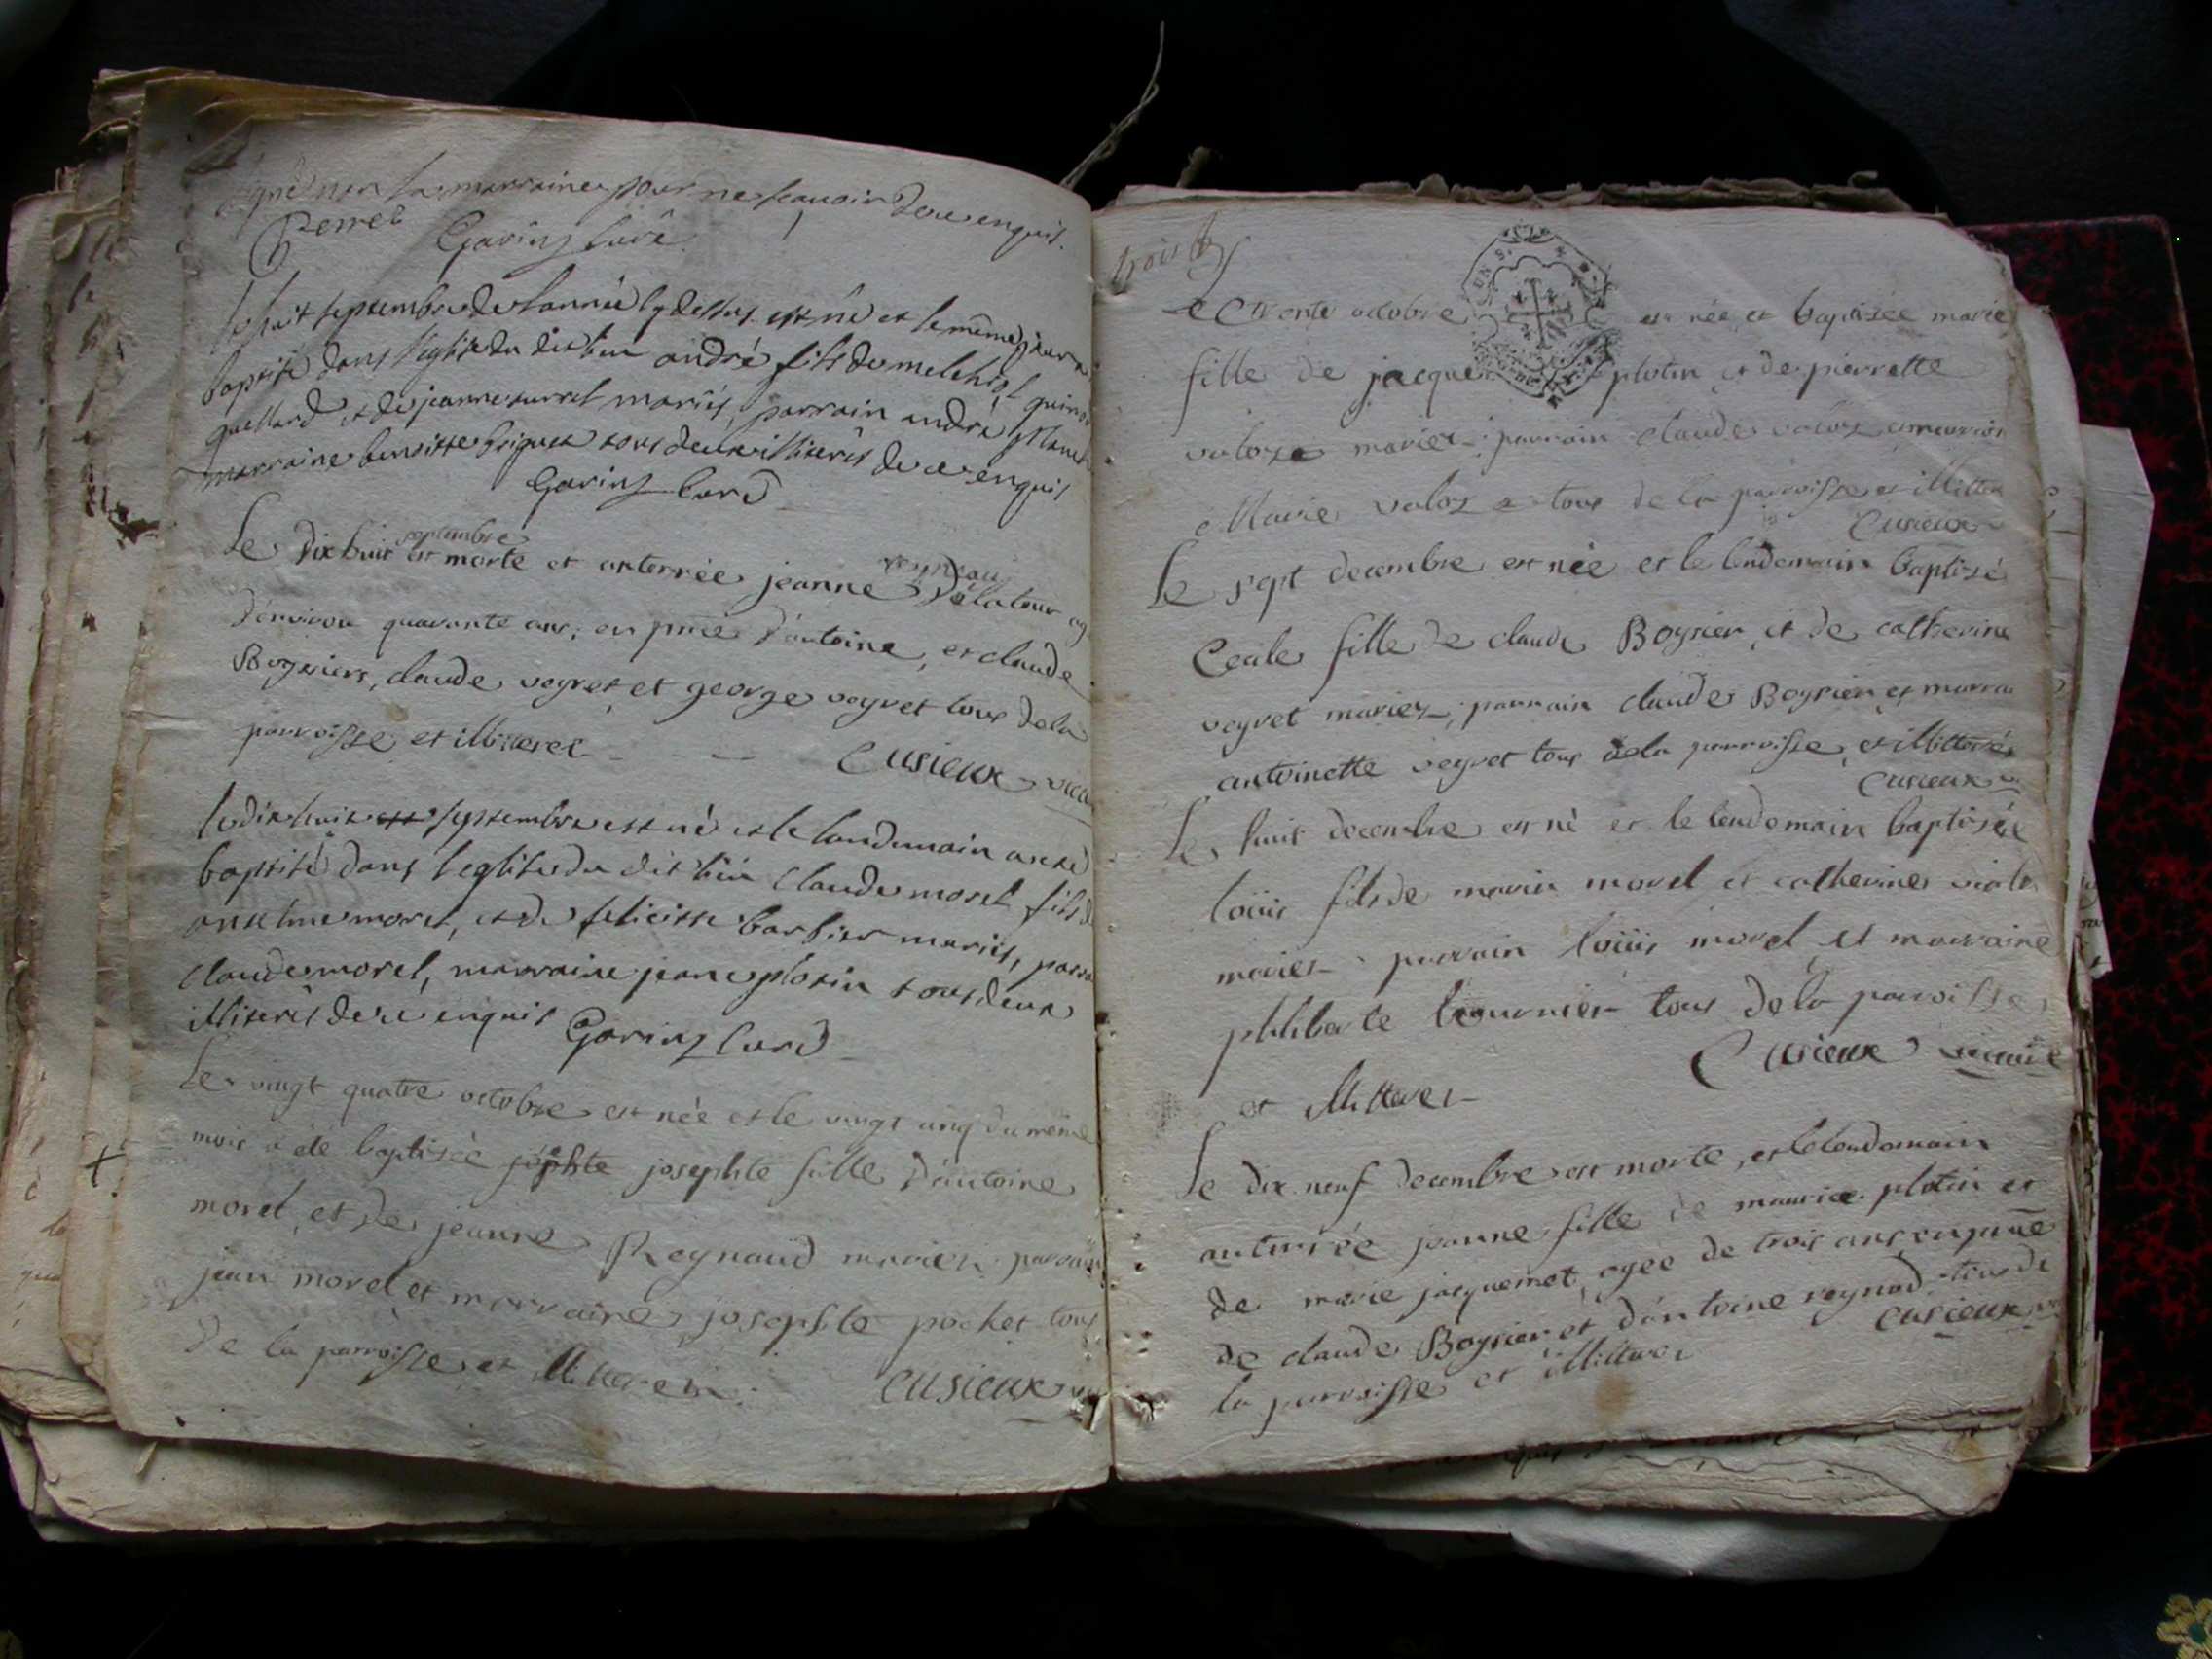 signé non la marraine pour ne scavoir de ce enquis.
Perret Garin curé
le huit septembre de l'année cy dessus est né et le même jour a
baptisé dans l'eglise du dit lieu andré fils de melchiol
guellard et de jeanne marriés, parrain andré
marraine benoitte tous deux illiterés de ce enquis
Garin curé
septembre reynaud
Le dix huit est morte et anterrée jeanne Delatour ag
d'environ quarante ans, en pnce d'antoine, et claude
Boysiers, claude veyret et george veyret tous de la
parroisse et illiterés
Cusieux vica
le dix huit est septembre est né et le landemain a été
baptisé dans l'eglise du dit lieu claude morel fils d
anselme morel, et de felicitté barbier mariés, parra
claude morel, marraine jeane plotin tous deux
illiterés de ce enquis Garin curé
Le vingt quatre octobre est née et le vingt cinq du même
mois a été baptisée josephte fille d'antoine
morel, et de jeanne Reynaud mariez parrain
jean morel et marraine josephte pochet tous
de la parroisse et illiterez
Cusieux vi
trois
Le trente octobre est née et baptisée marie
fille de jacque plotin et de pierrette
valoz mariez parrain claude valoz
Marie valoz tous de la parroisse et illiter
Cusieux
Le sept decembre est née et le lendemain baptisé
Cecile fille de claude Boysier, et de catherine
veyret mariez, parrain claude Boysier et marrai
antoinette veyret tous de la parroisse, et illiterés
Cusieux
Le huit decembre est né et le lendemain baptisée
loüis fils de marin morel et catherine
mariez parrain loüis morel et marraine
philiberte tournier tous de la parroisse
Cusieux vicaire
et illiterez
Le dix neuf decembre est morte, et le lendomain
anterrée jeanne fille de maurice plotin et
de marie jacquemet, agée de trois ans en pnce
de claude Boysier et d'antoine reynod tous de
Cusieux
la parroisse et illiterez